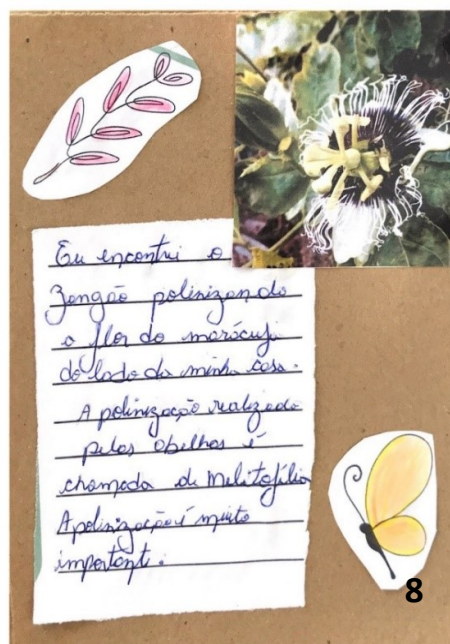 Eu encontrei o
Zangão polinizando
a flor do marácujá
do lado da minha casa.
A polinização realizada
pelas abelhas é
chamada de Melitofilia
A polinização é muito
importante.
8